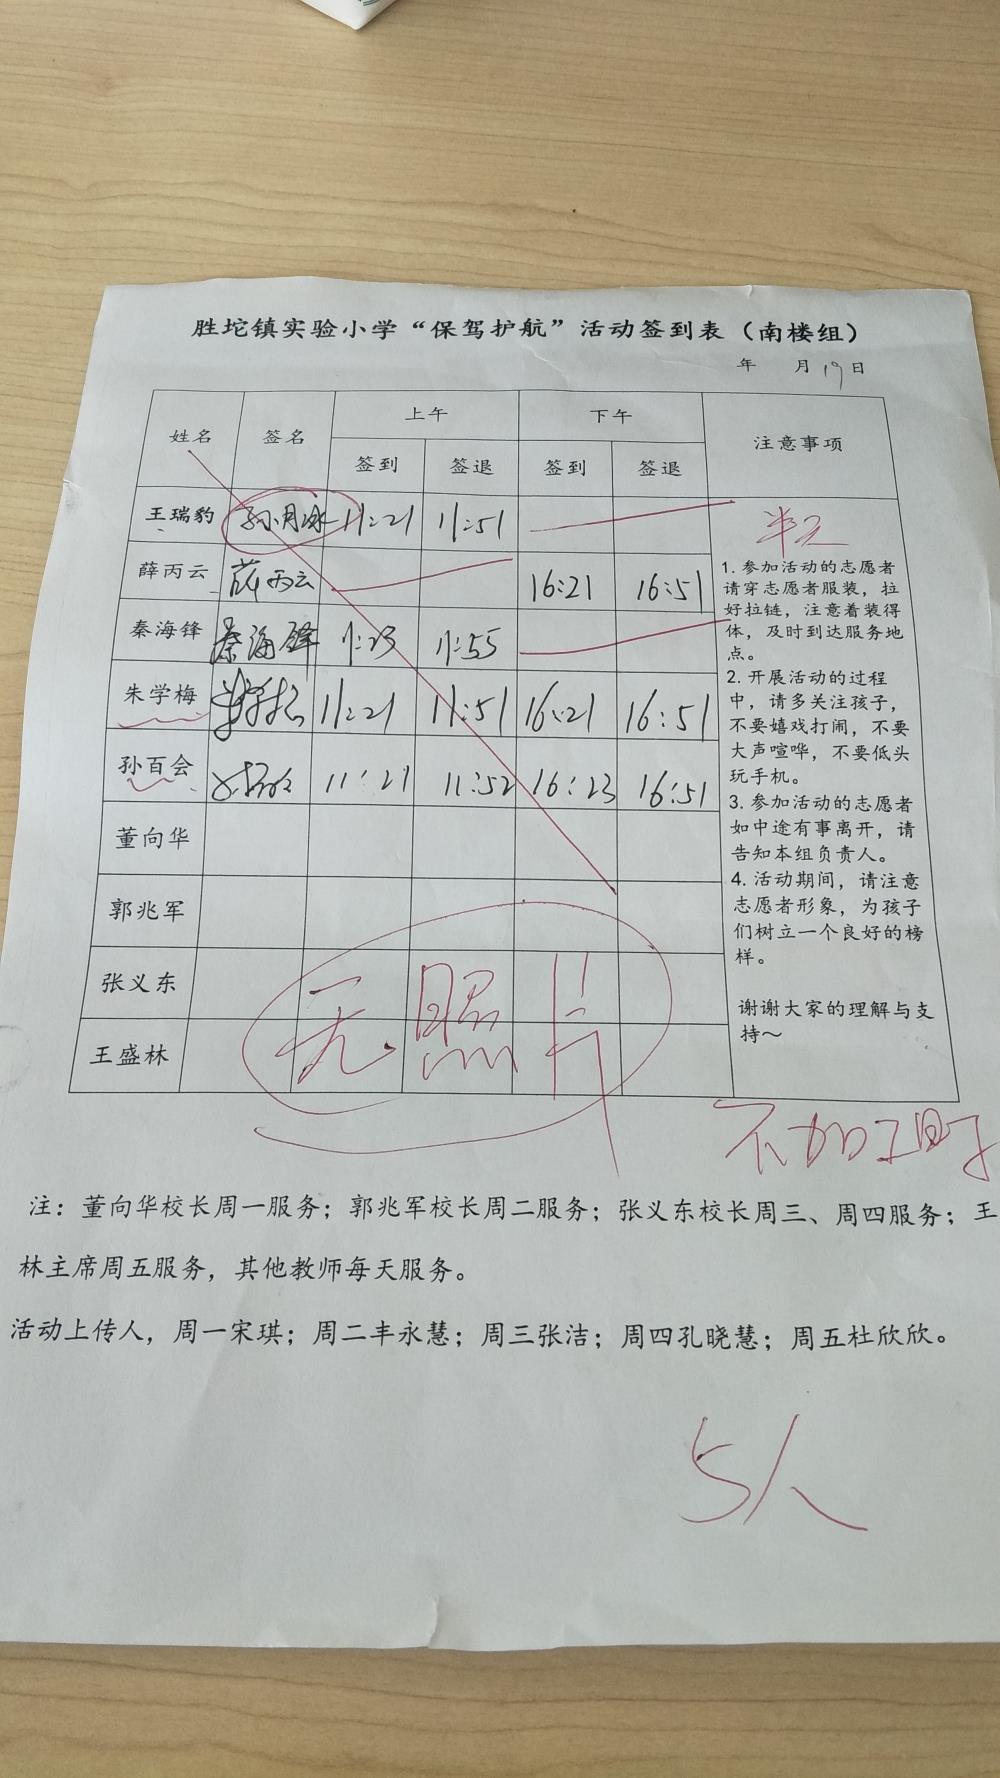 胜坨镇实验小学“保驾护航”活动签到表（南楼组）
年 月19日
姓名 签名 上午 下午 注意事项
签到 签退 签到 签退
王瑞豹 孙月冰 11:21 11:51
半天
薛丙云 薛丙云 16:21 16:51
秦海锋 秦海锋 11:23 11:55
朱学梅 11:21 11:51 16:21 16:51
孙百会 11:21 11:52 16:23 16:51
董向华
郭兆军
张义东
王盛林
1. 参加活动的志愿者
请穿志愿者服装，拉
好拉链，注意着装得
体，及时到达服务地
点。
2. 开展活动的过程
中，请多关注孩子，
不要嬉戏打闹，不要
大声喧哗，不要低头
玩手机。
3. 参加活动的志愿者
如中途有事离开，请
告知本组负责人。
4. 活动期间，请注意
志愿者形象，为孩子
们树立一个良好的榜
样。
谢谢大家的理解与支
持～
无照片
不加
注：董向华校长周一服务；郭兆军校长周二服务；张义东校长周三、周四服务；王
林主席周五服务，其他教师每天服务。
活动上传人，周一宋琪；周二丰永慧；周三张洁；周四孔晓慧；周五杜欣欣。
5人